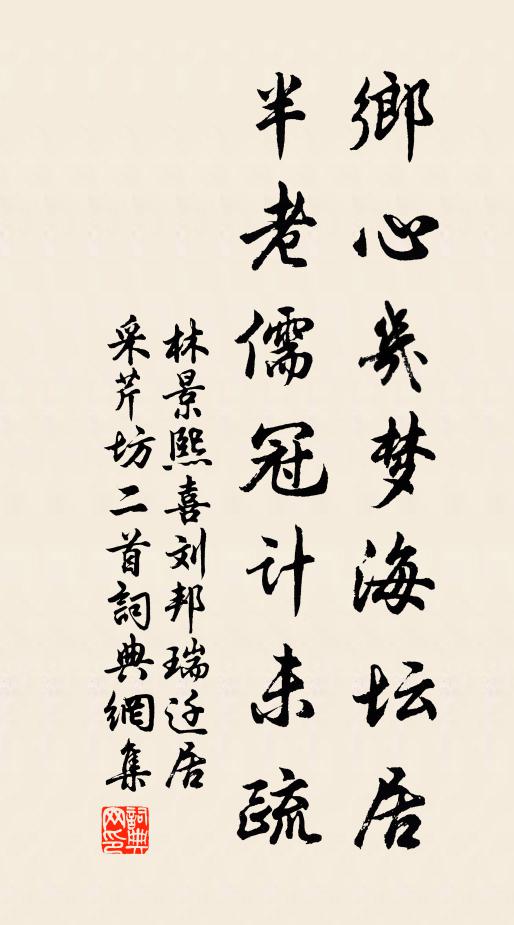 鄉心幾梦海坛居
半老儒冠计未疏
林景熙喜刘邦瑞迁居
采芹坊二首詞典網集
詞典
网印